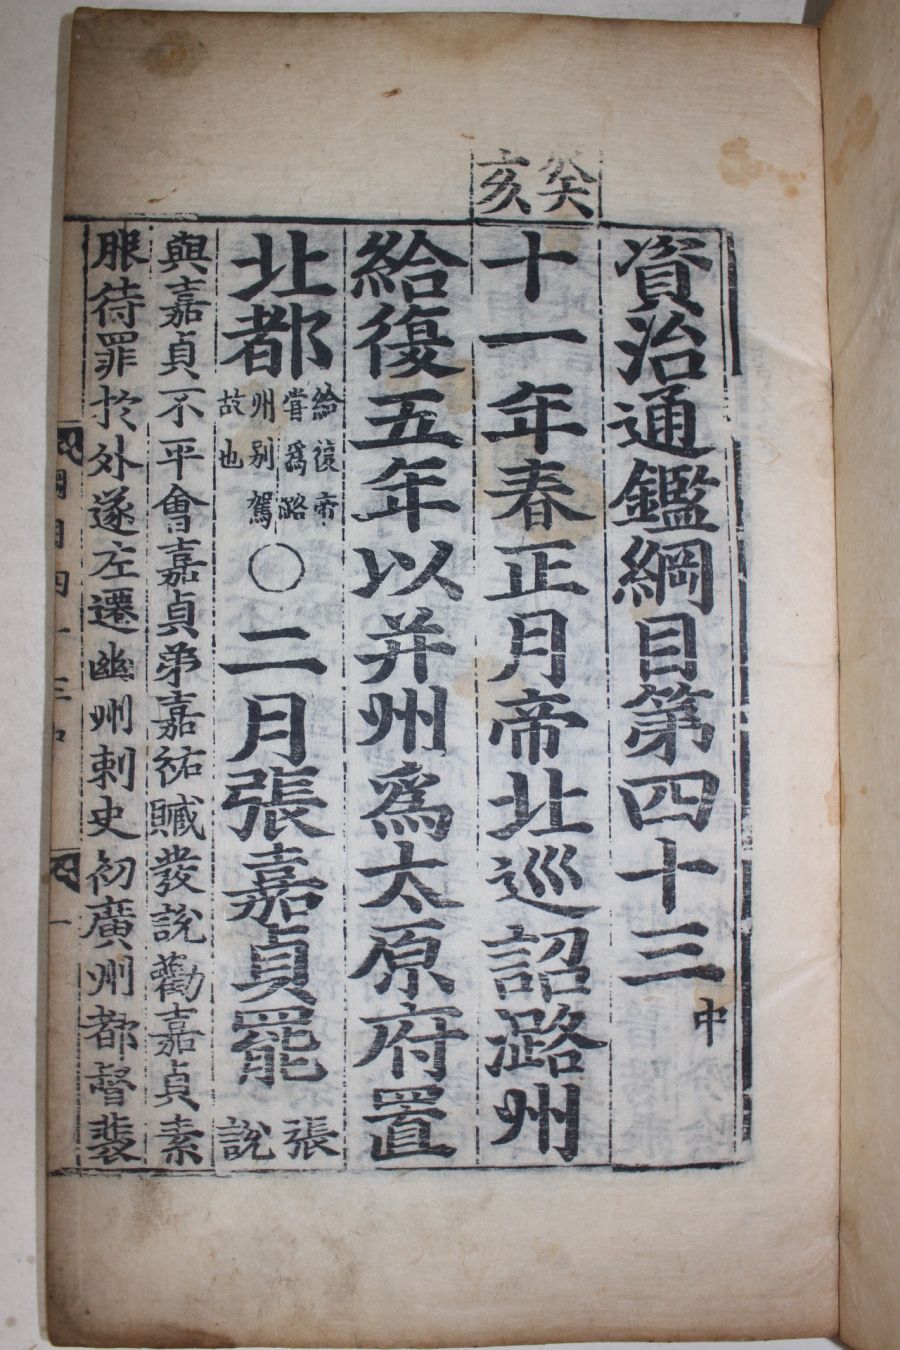 資治通鑑綱目第四十三中
癸亥
十一年春正月帝北巡詔潞州
給復五年以并州爲太原府置
北都給復帝嘗爲潞州别駕故也○二月張嘉貞罷張說
與嘉貞不平會嘉貞弟嘉祐贓發說勸嘉貞素
服待罪於外遂左遷幽州刺史初廣州都督裴